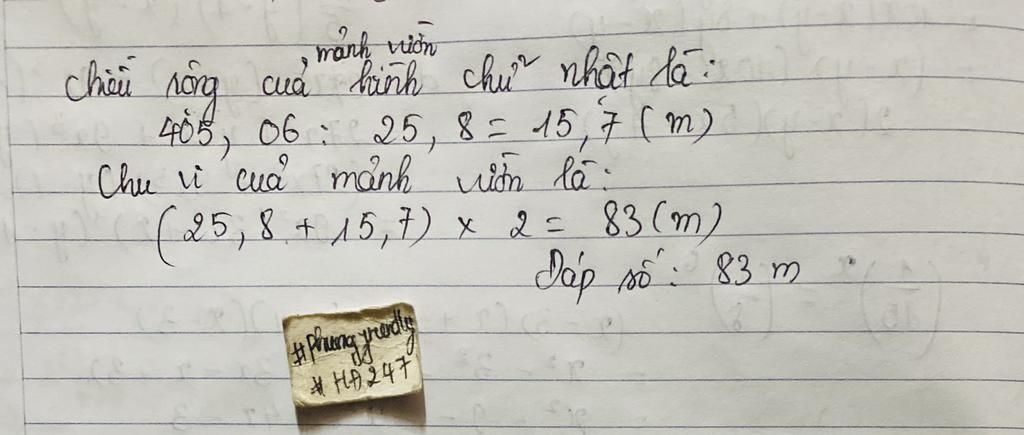 mảnh vườn
Chiều rộng của hình chữ nhật là:
405,06 : 25,8 = 15,7 (m)
Chu vi của mảnh vườn là:
(25,8 + 15,7) x 2 = 83 (m)
Đáp số: 83 m
# HA247